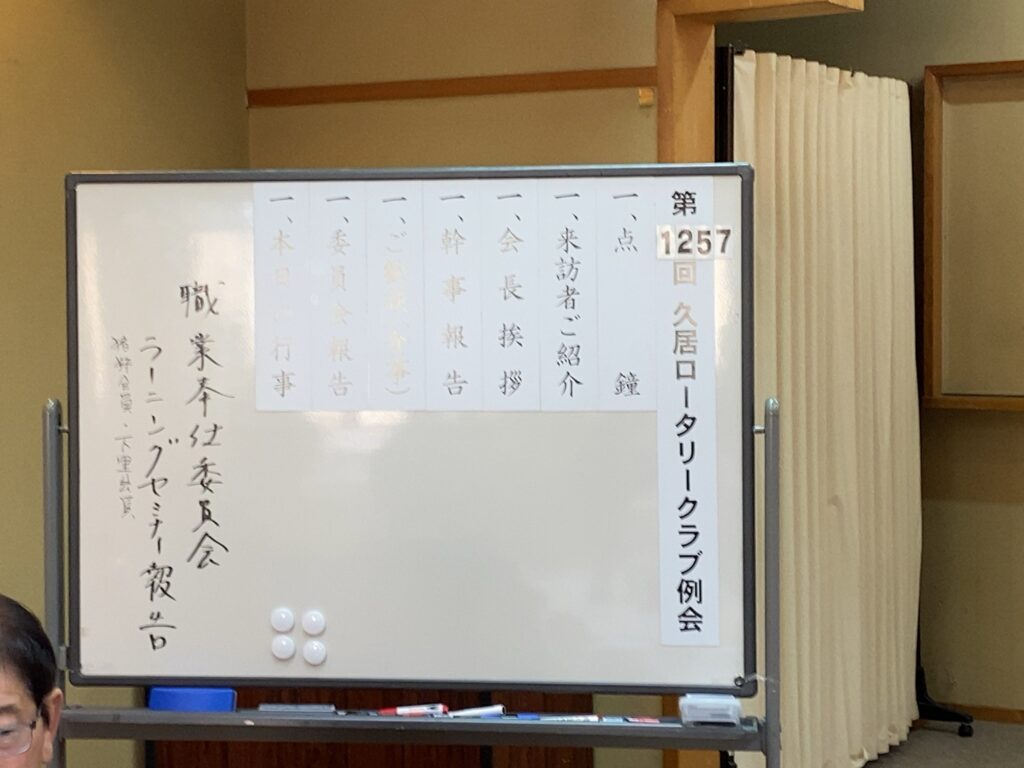 第1257回 久居ロータリークラブ例会
一、点鐘
一、来訪者ご紹介
一、会長挨拶
一、幹事報告
一、ご歓談(食事)
一、委員会報告
一、本日の行事
職業奉仕委員会
ラーニングセミナー報告